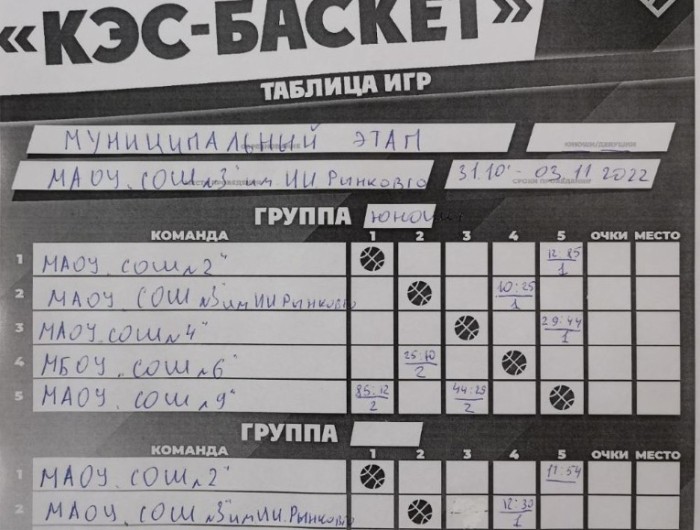 «КЭС-БАСКЕТ»
ТАБЛИЦА ИГР
МУНИЦИПАЛЬНЫЙ ЭТАП
МАОУ "СОШ №3" им. И.И. Рынкового 31.10 - 03.11 2022
ГРУППА юноши
КОМАНДА 1 2 3 4 5 ОЧКИ МЕСТО
1 МАОУ "СОШ №2" 12:85 1
2 МАОУ "СОШ №3" им И.И. Рынкового 10:25 1
3 МАОУ "СОШ №4" 29:44 1
4 МБОУ "СОШ №6" 25:10 2
5 МАОУ "СОШ №9" 85:12 2 44:29 2
ГРУППА
КОМАНДА 1 2 3 4 5 ОЧКИ МЕСТО
1 МАОУ "СОШ №2" 11:54
2 МАОУ "СОШ №3" им И.И. Рынкового 12:30 1